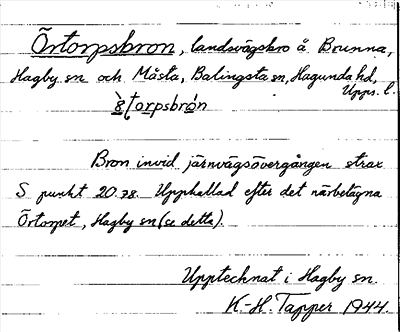 Örtorpsbron, landsvägsbro å Brunna,
Hagby sn och Måsta, Balingsta sn, Hagunda hd,
Upps. l.
torpsbrón
Bron invid järnvägsövergången strax
S punkt 20.78. Upphallad efter det närbelägna
Örtorpet, Hagby sn (se detta).
Upptecknat i Hagby sn.
K-H. Tapper 1944.